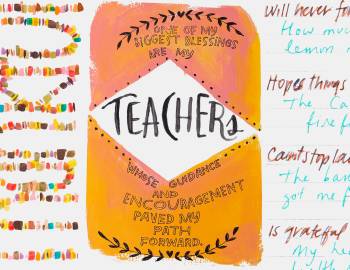 ONE OF MY
BIGGEST BLESSINGS
ARE MY
TEACHERS
WHOSE GUIDANCE
AND
ENCOURAGEMENT
PAVED MY
PATH
FORWARD.
Will never for
How much
lemon
Hopes things
The Ca
fire
Can't stop la
The ban
got me f
Is grateful
My he